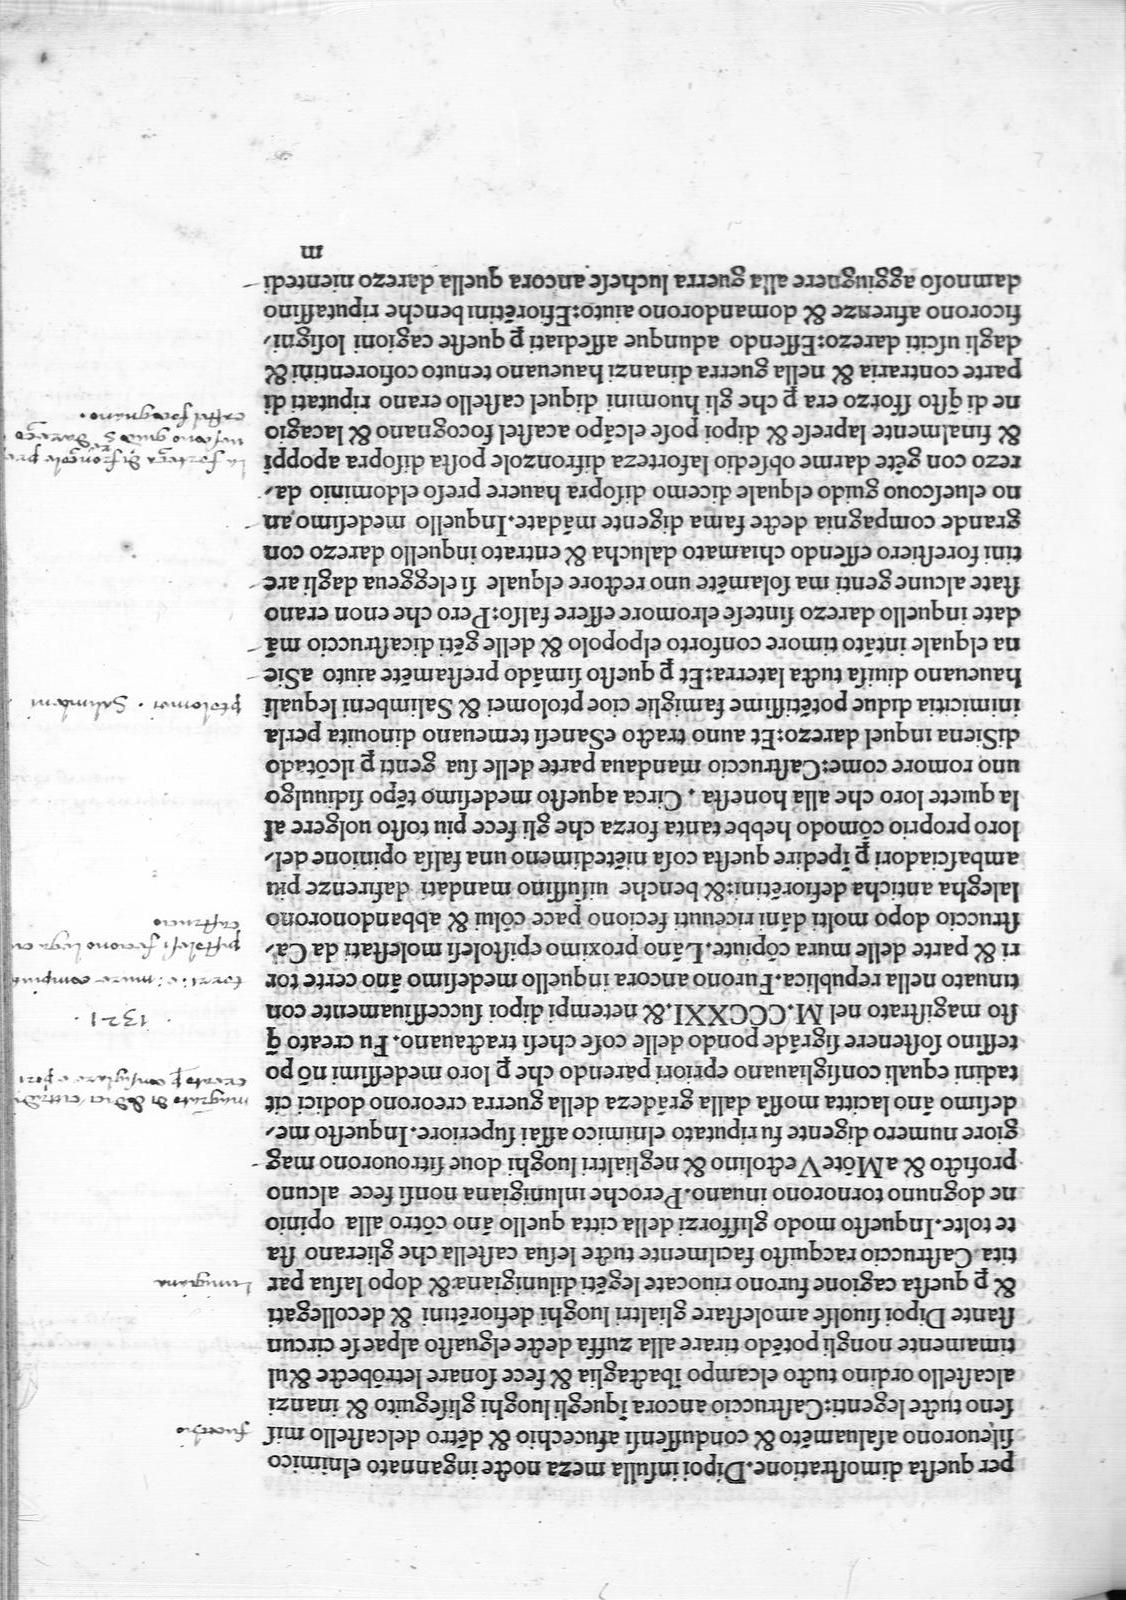 per questa dimostratione. Dipoi insulla meza nocte ingannato elnimico
sileuorono asaluamẽto & condussensi afucecchio & dẽtro delcastello mis
seno tucte legenti: Castruccio ancora ĩquegli luoghi gliseguito & inanzi
alcastello ordino tucto elcampo ĩbactaglia & fece sonare letrõbecte & ul
timamente nongli potẽdo tirare alla zuffa decte elguasto alpaese circun
stante Dipoi siuolse amolestare glialtri luoghi defiorẽtini & decollegati
& ꝑ questa cagione furono riuocate legẽti dilunigiana: & dopo lasua par
tita Castruccio racquisto facilmente tucte lesua castella che glierano sta
te tolte. Inquesto modo glisforzi della citta quello ãno cõtro alla opinio
ne dognuno tornorono inuano. Peroche inlunigiana nonsi fece alcuno
profitto & a Mõte Vectolino & neglialtri luoghi doue sitrouorono mag
giore numero digente fu riputato elnimico assai superiore. Inquesto me,
desimo ãno lacitta mossa dalla grãdeza della guerra creorono dodici cit
tadini equali consigliauano epriori parendo che ꝑ loro medessimi nõ po
tessino sostenere sigrãde pondo delle cose chesi tractauano. Fu creato q̃
sto magistrato nel M.CCCXXI. & netempi dipoi successiuamente con
tinuato nella republica. Furono ancora inquello medesimo ãno certe tor
ri & parte delle mura cõpiute. Lãno proximo epistolesi molestati da Ca,
struccio dopo molti dãni riceuuti feciono pace cõlui & abbandonorono
lalegha anticha defiorẽtini: & benche uisussino mandati dafirenze piu
ambasciadori ꝑ ĩpedire questa cosa niẽtedimeno una falsa opinione del,
loro proprio cõmodo hebbe tanta forza che gli fece piu tosto uolgere al
la quiete loro che alla honesta. Circa aquesto medesimo tẽpo sidiuulgo
uno romore come: Castruccio mandaua parte delle sua genti ꝑ ilcõtado
diSiena inquel darezo: Et auno tracto eSanesi temeuano dinouita perla
inimicitia didue potẽtissime famiglie cioe ptolomei & Salimbeni lequali
haueuano diuisa tucta laterra: Et ꝑ questo simãdo prestamẽte aiuto aSie
na elquale intãto timore conforto elpopolo & delle gẽti dicastruccio mã
date inquello darezo sintese elromore essere falso: Pero che enon erano
state alcune genti ma solamẽte uno rectore elquale si eleggeua dagli are
tini forestiero essendo chiamato dalucha & entrato inquello darezo con
grande compagnia decte fama digente mãdate. Inquello medesimo an
no eluescouo guido elquale dicemo disopra hauere preso eldominio da,
rezo con gẽte darme obsedio laforteza difronzole posta disopra apoppi
& finalmente laprese & dipoi pose elcãpo acastel focognano & lacagio
ne di q̃sto sforzo era ꝑ che gli huomini diquel castello erano riputati di
parte contraria & nella guerra dinanzi haueuano tenuto cofiorentini &
dagli usciti darezo: Essendo adunque assediati ꝑ queste cagioni losigni,
ficorono afirenze & domandorono aiuto: Efiorẽtini benche riputassino
dannoso aggiugnere alla guerra luchese ancora quella darezo mentedi
m
fucechio
lunigiana
1321
ptolomei. Salimbeni